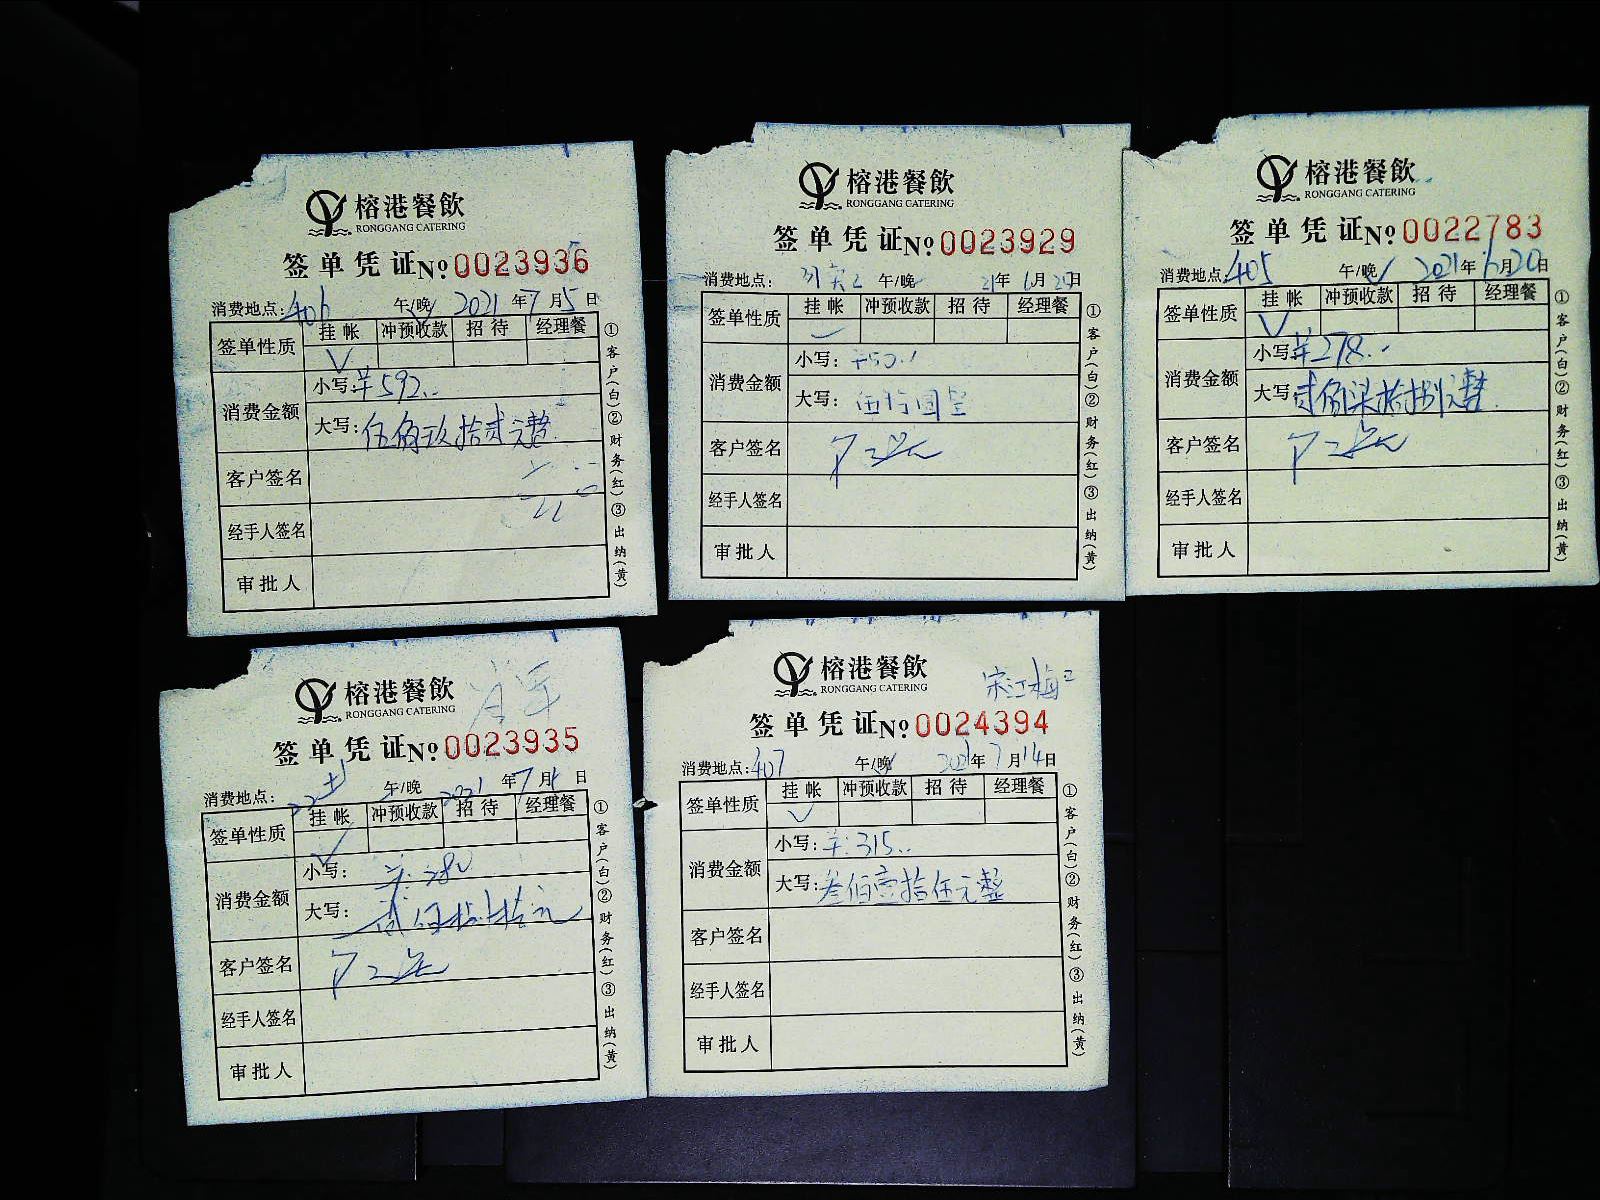 榕港餐飲
RONGGANG CATERING
签单凭证 №0023936
消费地点: 406 午/晚 2021年7月5日
签单性质 挂帐 冲预收款 招待 经理餐
消费金额 小写: ¥592..
大写: 伍佰玖拾贰元整
客户签名
经手人签名
审批人
①客户(白)②财务(红)③出纳(黄)
榕港餐飲
RONGGANG CATERING
签单凭证 №0023929
消费地点: 午/晚 21年6月日
签单性质 挂帐 冲预收款 招待 经理餐
消费金额 小写: ¥50.
大写: 伍拾圆
客户签名
经手人签名
审批人
①客户(白)②财务(红)③出纳(黄)
榕港餐飲
RONGGANG CATERING
签单凭证 №0022783
消费地点: 405 午/晚 2021年6月20日
签单性质 挂帐 冲预收款 招待 经理餐
消费金额 小写: ¥278..
大写: 贰佰柒拾捌元整
客户签名
经手人签名
审批人
①客户(白)②财务(红)③出纳(黄)
榕港餐飲
RONGGANG CATERING
签单凭证 №0023935
消费地点: 午/晚 2021年7月4日
签单性质 挂帐 冲预收款 招待 经理餐
消费金额 小写: ¥:280
大写: 贰佰捌拾元
客户签名
经手人签名
审批人
①客户(白)②财务(红)③出纳(黄)
榕港餐飲
RONGGANG CATERING
宋江梅
签单凭证 №0024394
消费地点: 407 午/晚 2021年7月14日
签单性质 挂帐 冲预收款 招待 经理餐
消费金额 小写: ¥:315..
大写: 叁佰壹拾伍元整
客户签名
经手人签名
审批人
①客户(白)②财务(红)③出纳(黄)